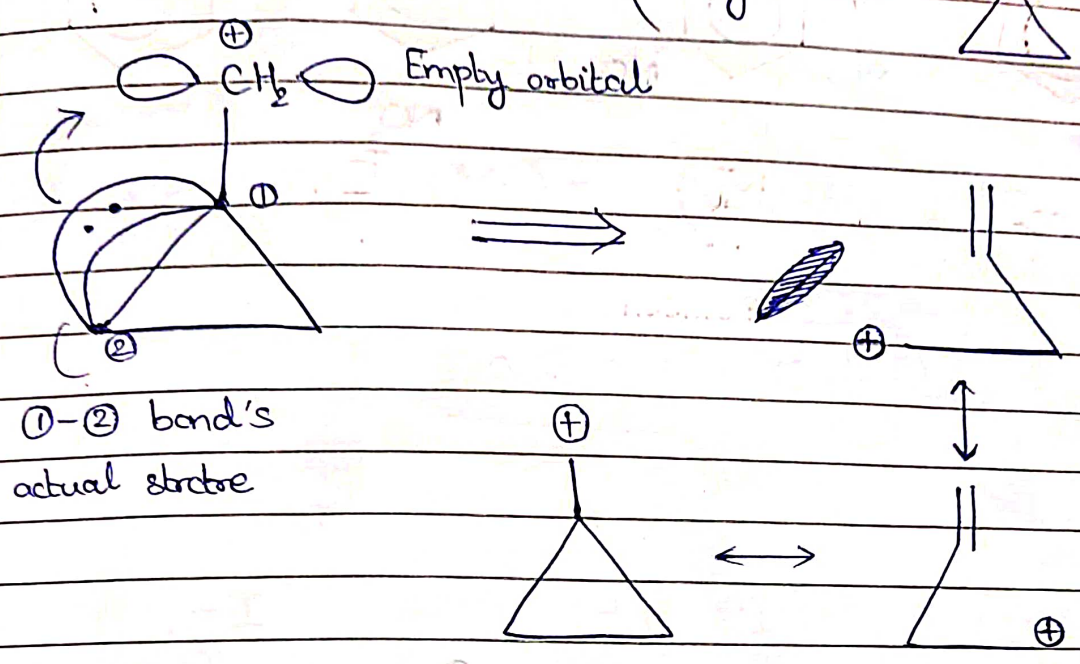 ⊕
CH₂ Empty orbital
①
②
⊕
①-② bond's
⊕
actual strctre
⊕